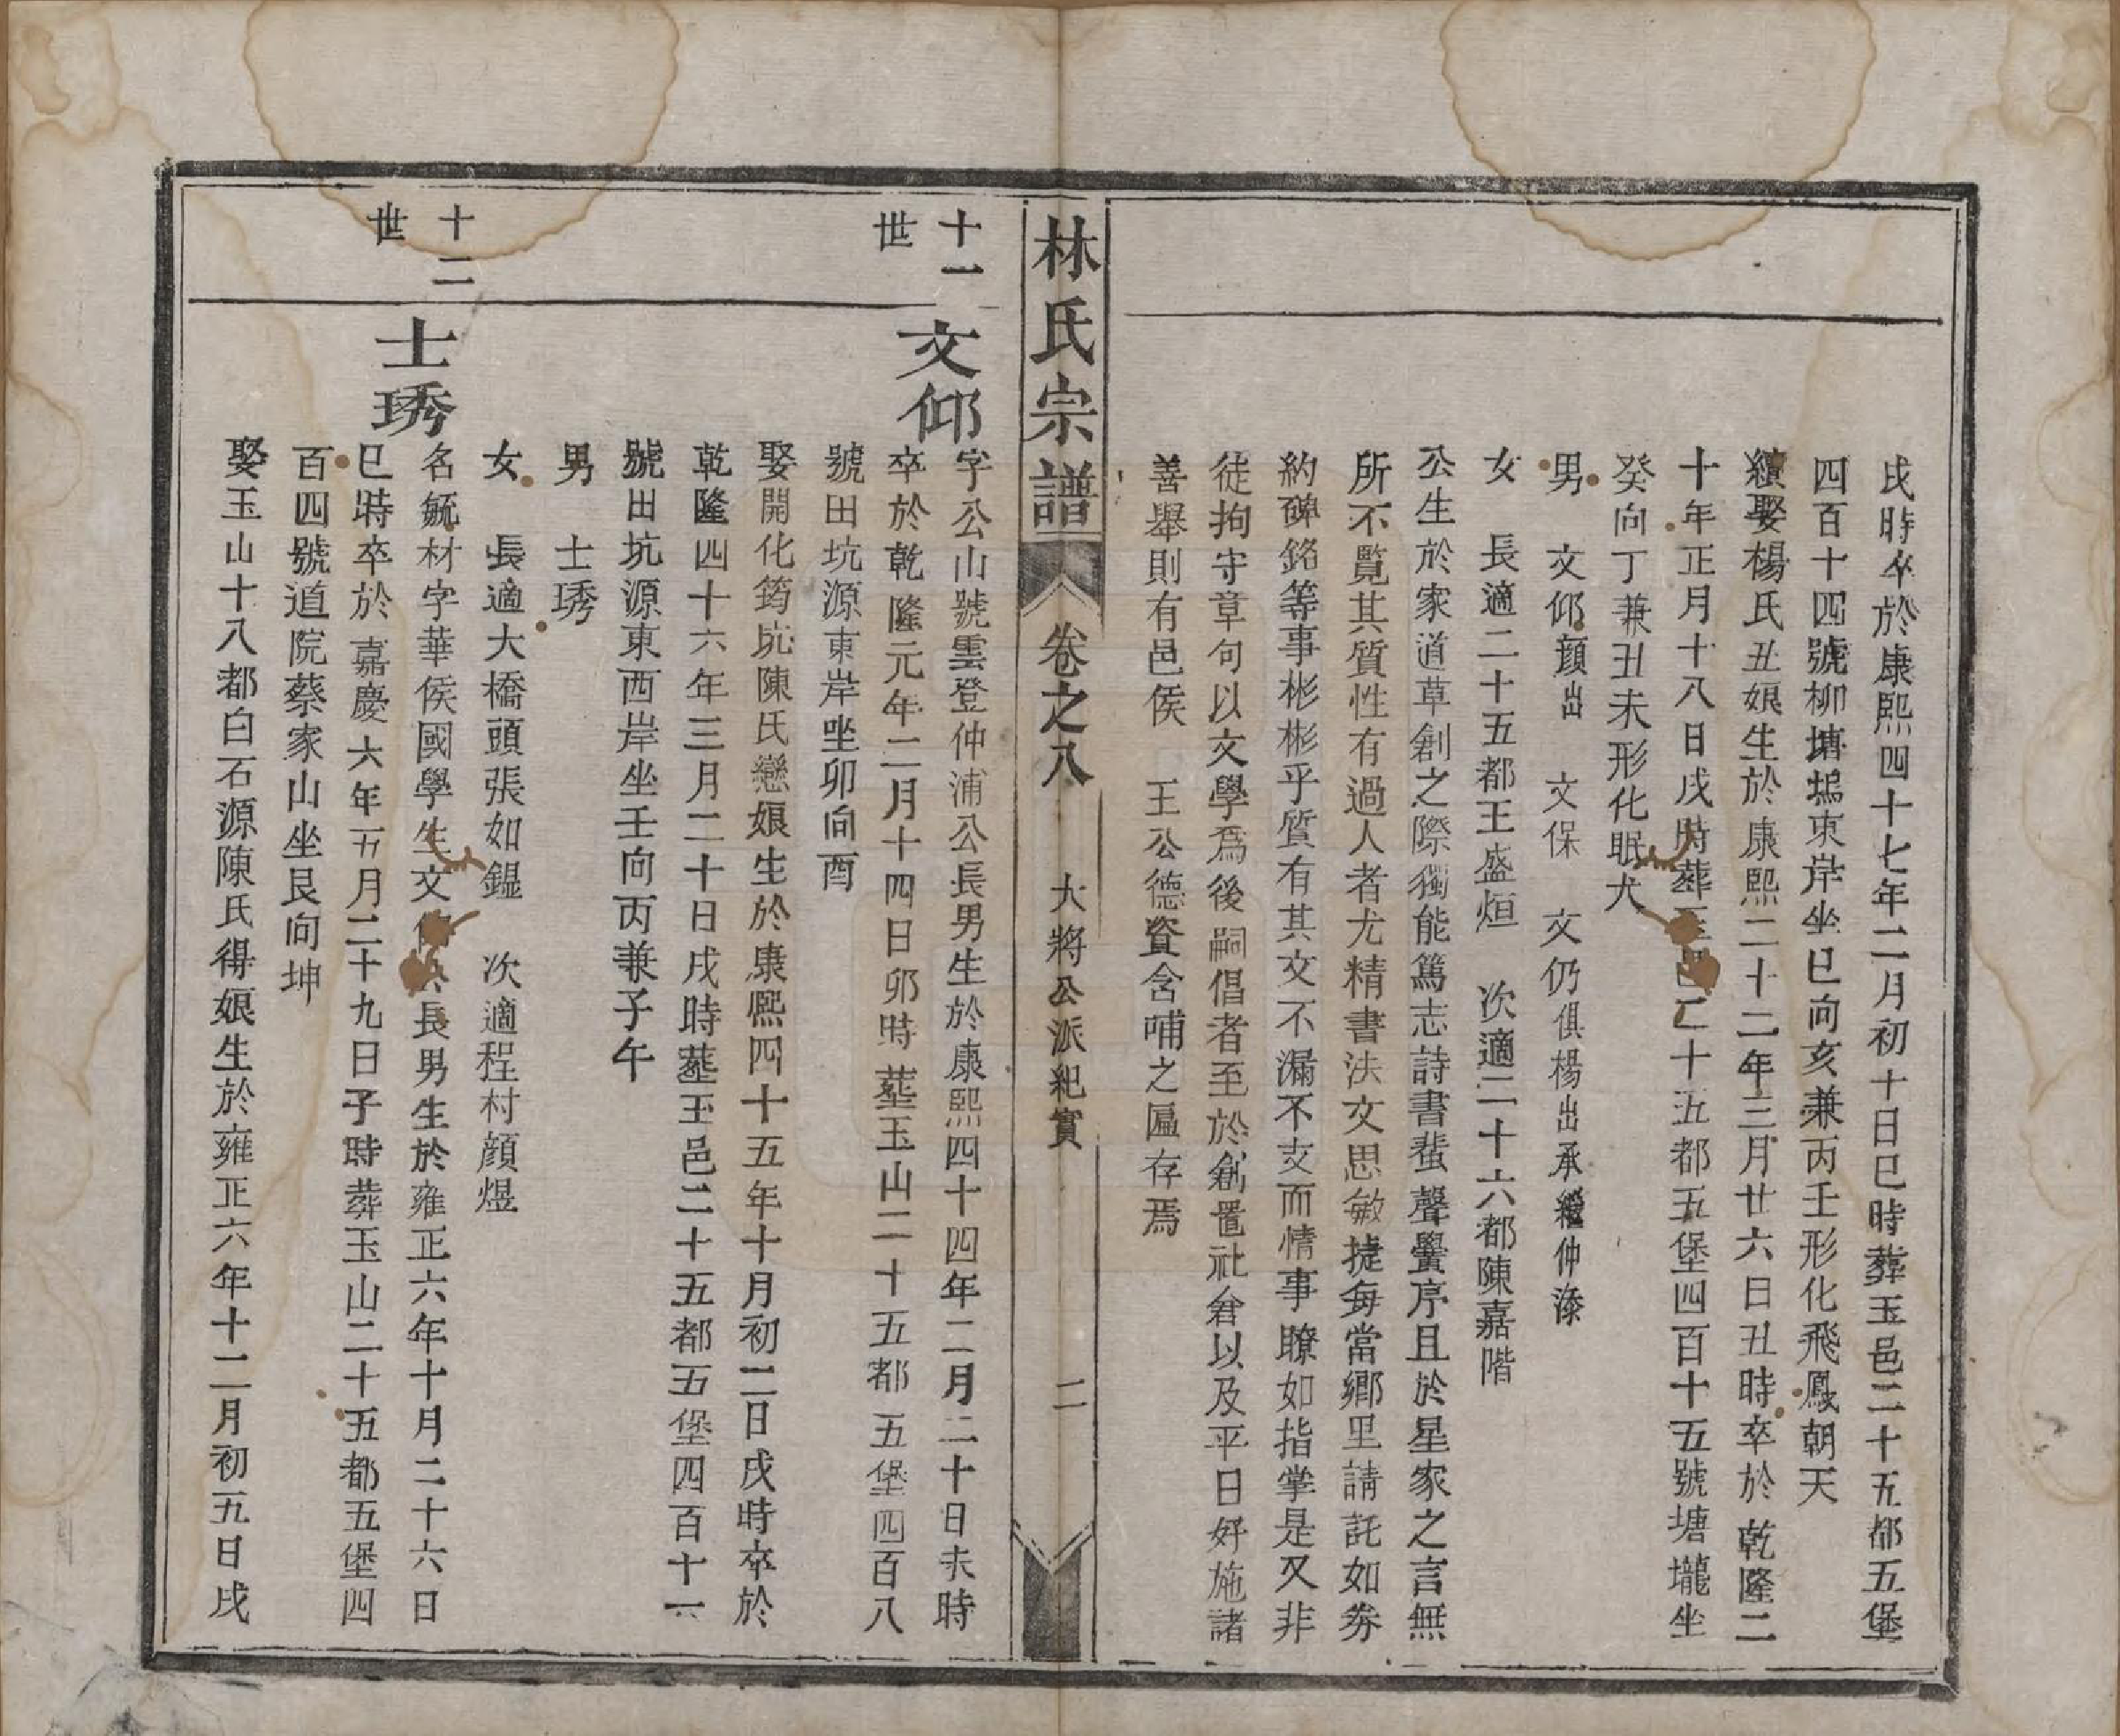 戌時卒於康熙四十七年二月初十日巳時葬玉邑二十五都五堡
四百十四號柳塘塢東岸坐巳向亥兼丙壬形化飛鳳朝天
續娶楊氏丑娘生於康熙二十二年三月廿六日丑時卒於乾隆二
十年正月十八日戌時葬玉邑二十五都五堡四百十五號塘壠坐
癸向丁兼丑未形化眠犬
男 文仰顔出 文保 文仍俱楊出承繼仲漆
女 長適二十五都王盛烜 次適二十六都陳嘉階
公生於家道草創之際獨能篤志詩書蜚聲黌序且於星家之言無
所不覽其質性有過人者尤精書法文思敏捷每當鄉里請託如券
約碑銘等事彬彬乎質有其文不漏不支而情事瞭如指掌是又非
徒拘守章句以文學爲後嗣倡者至於創置社倉以及平日好施諸
善舉則有邑侯 王公德資含哺之匾存焉
林氏宗譜 卷之八 大將公派紀實 二
十一世
文仰
字公山號雲登仲浦公長男生於康熙四十四年二月二十日未時
卒於乾隆元年二月十四日卯時塟玉山二十五都五堡四百八
號田坑源東岸坐卯向酉
娶開化筠坑陳氏戀娘生於康熙四十五年十月初二日戌時卒於
乾隆四十六年三月二十日戌時塟玉邑二十五都五堡四百十一
號田坑源東西岸坐壬向丙兼子午
男 士琇
女 長適大橋頭張如鎾 次適程村顔煜
十二世
士琇
名毓材字華侯國學生文公長男生於雍正六年十月二十六日
巳時卒於嘉慶六年五月二十九日子時葬玉山二十五都五堡四
百四號道院蔡家山坐艮向坤
娶玉山十八都白石源陳氏得娘生於雍正六年十二月初五日戌